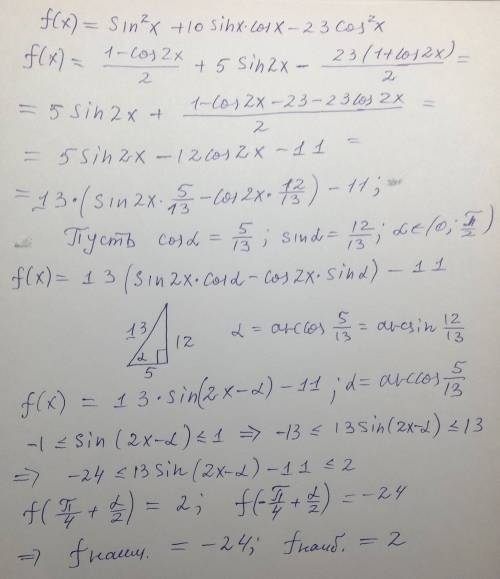 f(x) = sin²x + 10 sinx·cosx - 23cos²x
f(x) = (1-cos2x)/2 + 5 sin2x - 23(1+cos2x)/2 =
= 5 sin2x + (1-cos2x-23-23cos2x)/2 =
= 5 sin2x - 12cos2x - 11 =
= 13·(sin2x·5/13 - cos2x·12/13) - 11;
Пусть cosα = 5/13; sinα = 12/13; α∈(0; π/2)
f(x) = 13(sin2x·cosα - cos2x·sinα) - 11
13 12 α 5 α = arccos 5/13 = arcsin 12/13
f(x) = 13·sin(2x-α) - 11; α = arccos 5/13
-1 ≤ sin(2x-α) ≤ 1 ⇒ -13 ≤ 13sin(2x-α) ≤ 13
⇒ -24 ≤ 13sin(2x-α) - 11 ≤ 2
f(π/4 + α/2) = 2; f(-π/4 + α/2) = -24
⇒ fнаим. = -24; fнаиб. = 2